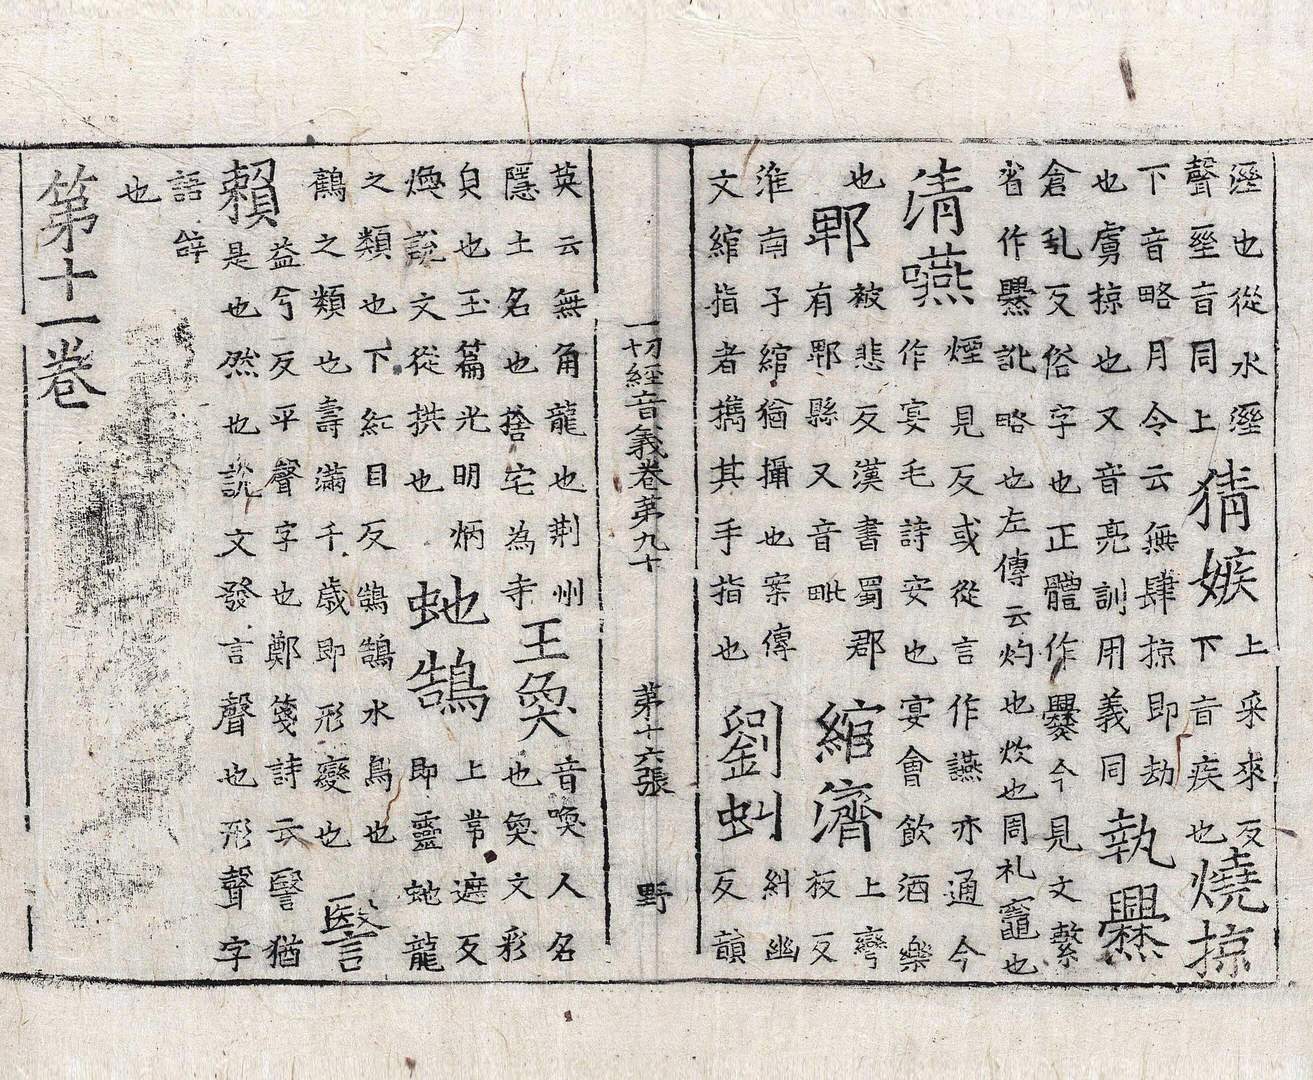 溼也從水溼
聲坙音同上猜嫉上采求反
下音疾也燒掠
下音略月令云無肆掠即劫
也虜掠也又音亮訓用義同執爨
倉乱反俗字也正體作爨今見文繫
省作爨訛略也左傳云灼也炊也周礼竈也
清嚥煙見反或從言作讌亦通今
作宴毛詩安也宴會飲酒樂
也郫被悲反漢書蜀郡
有郫縣又音毗綰濟上彎
板反
淮南子綰猶攝也案傳
文綰指者擕其手指也劉虯糾幽
反韻
一切經音義卷第九十 第十六張 野
英云無角龍也荊州
隱士名也捨宅為寺王奐音喚人名
也奐文彩
皃也玉篇光明炳
煥說文從拱也虵鵠上常遮反
即靈虵龍
之類也下紅目反鵠鵠水鳥也
鶴之類也壽滿千歲即形變也毉
益兮反平聲字也鄭箋詩云毉猶
賴是也然也說文發言聲也形聲字
語辝
也
第十一卷